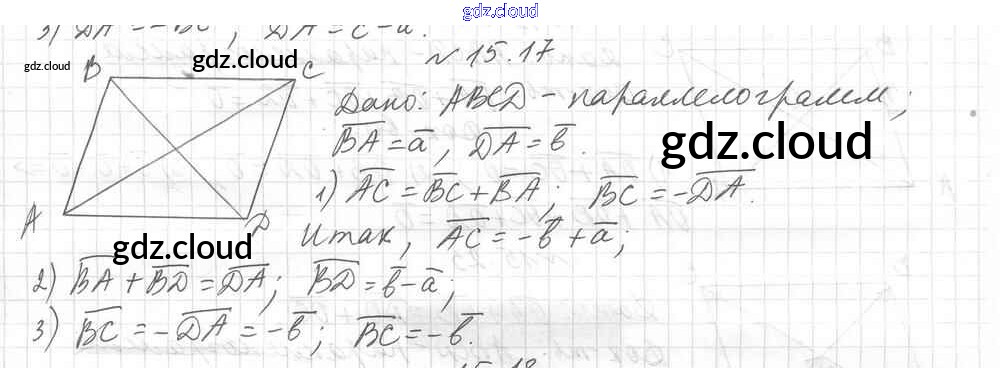 gdz.cloud
3) DA = -BC; DA = c - a.
№ 15.17
gdz.cloud
B gdz.cloud C
Дано: ABCD - параллелограмм;
BA̅ = a̅, DA̅ = b̅.
gdz.cloud
1) AC̅ = BC̅ + BA̅; BC̅ = -DA̅.
A D
Итак, AC̅ = -b̅ + a̅;
gdz.cloud
2) BA̅ + BD̅ = DA̅; BD̅ = b̅ - a̅;
3) BC̅ = -DA̅ = -b̅; BC̅ = -b̅.